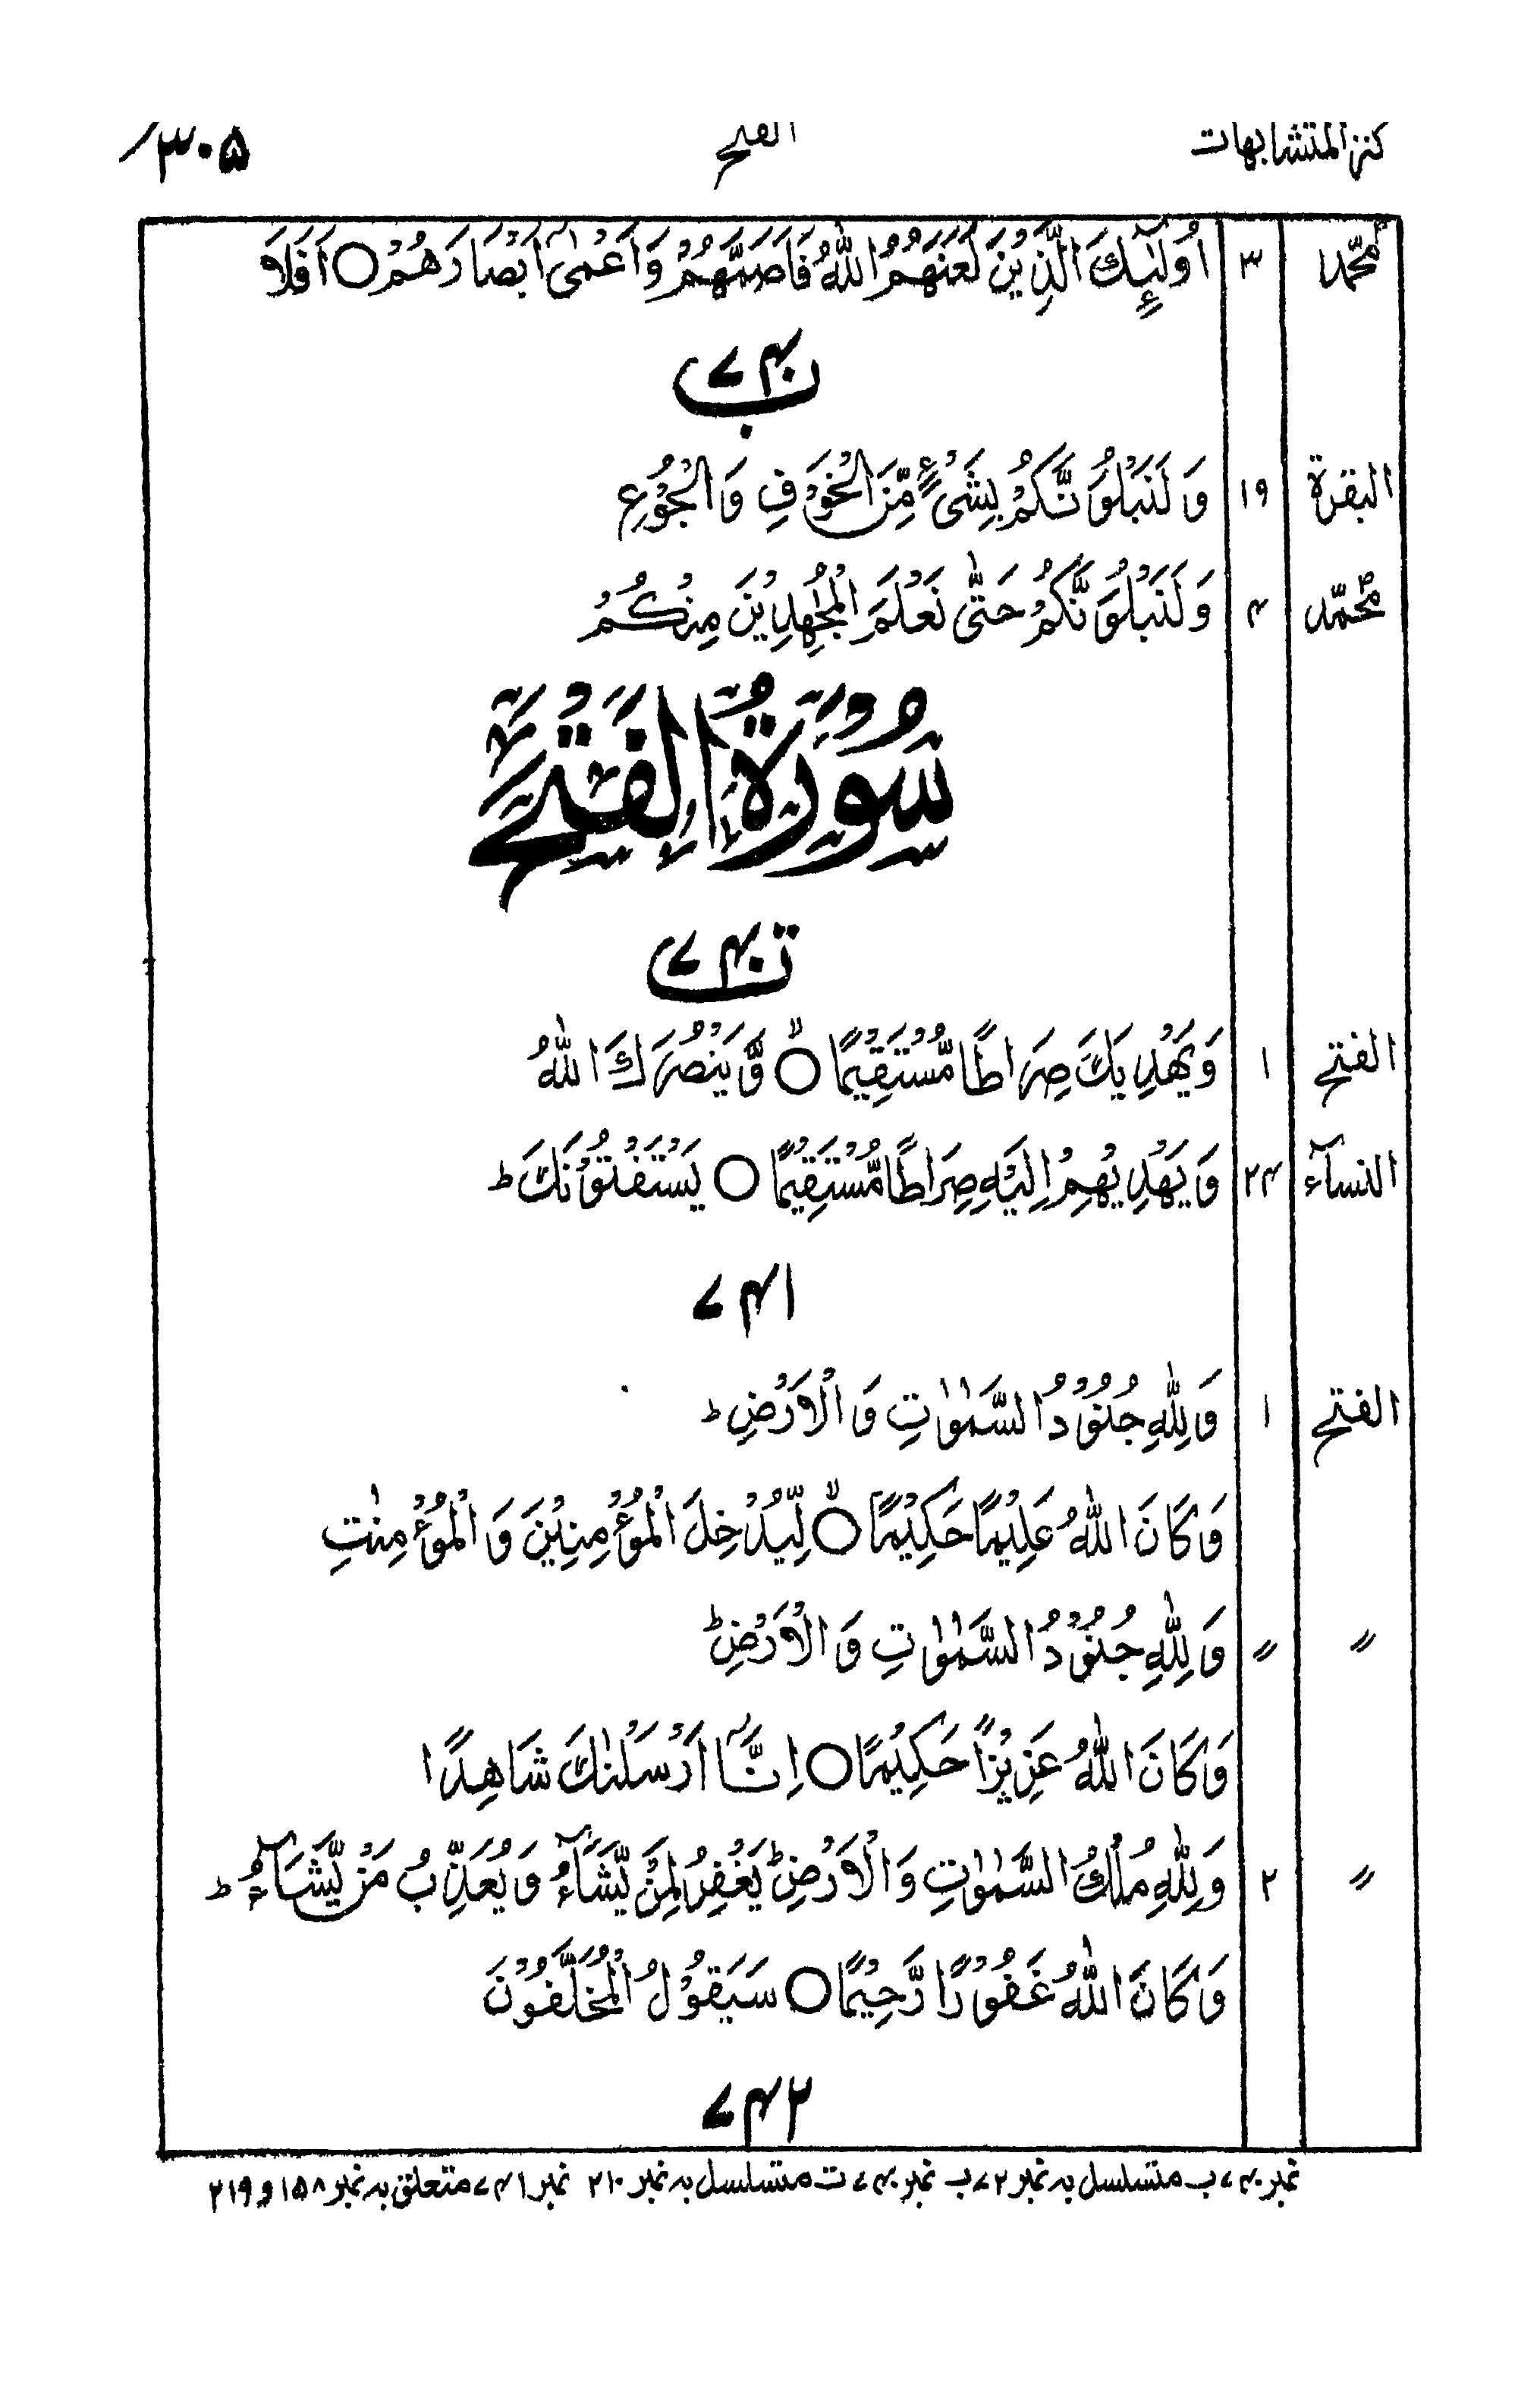 کنز المتشابهات الفتح ۳۰۵
محمد ۳ اُولٰٓئِكَ الَّذِيْنَ لَعَنَهُمُ اللّٰهُ فَاَصَمَّهُمْ وَاَعْمٰٓى اَبْصَارَهُمْ ○ اَفَلَا
۷۴۰ب
البقرة ۱۹ وَلَنَبْلُوَنَّكُمْ بِشَىْءٍ مِّنَ الْخَوْفِ وَالْجُوْعِ
محمّد ۴ وَلَنَبْلُوَنَّكُمْ حَتّٰى نَعْلَمَ الْمُجٰهِدِيْنَ مِنْكُمْ
سُوْرَةُ الْفَتْحِ
۷۴۰ت
الفتح ۱ وَيَهْدِيَكَ صِرَاطًا مُّسْتَقِيْمًا ○ۙ وَّيَنْصُرَكَ اللّٰهُ
النسآء ۲۴ وَيَهْدِيْهِمْ اِلَيْهِ صِرَاطًا مُّسْتَقِيْمًا ○ يَسْتَفْتُوْنَكَ ؕ
۷۴۱
الفتح ۱ وَلِلّٰهِ جُنُوْدُ السَّمٰوٰتِ وَالْاَرْضِ ؕ
وَكَانَ اللّٰهُ عَلِيْمًا حَكِيْمًا ○ۙ لِّيُدْخِلَ الْمُؤْمِنِيْنَ وَالْمُؤْمِنٰتِ
〃 〃 وَلِلّٰهِ جُنُوْدُ السَّمٰوٰتِ وَالْاَرْضِ ؕ
وَكَانَ اللّٰهُ عَزِيْزًا حَكِيْمًا ○ اِنَّآ اَرْسَلْنٰكَ شَاهِدًا
〃 ۲ وَلِلّٰهِ مُلْكُ السَّمٰوٰتِ وَالْاَرْضِ ؕ يَغْفِرُ لِمَنْ يَّشَآءُ وَيُعَذِّبُ مَنْ يَّشَآءُ ؕ
وَكَانَ اللّٰهُ غَفُوْرًا رَّحِيْمًا ○ سَيَقُوْلُ الْمُخَلَّفُوْنَ
۷۴۲
نمبر ۷۴۰ب متسلسل بہ نمبر ۷۲ب نمبر ۷۴۰ت متسلسل بہ نمبر ۲۱۰ نمبر ۷۴۱ متعلق بہ نمبر ۱۵۸ و ۲۱۹